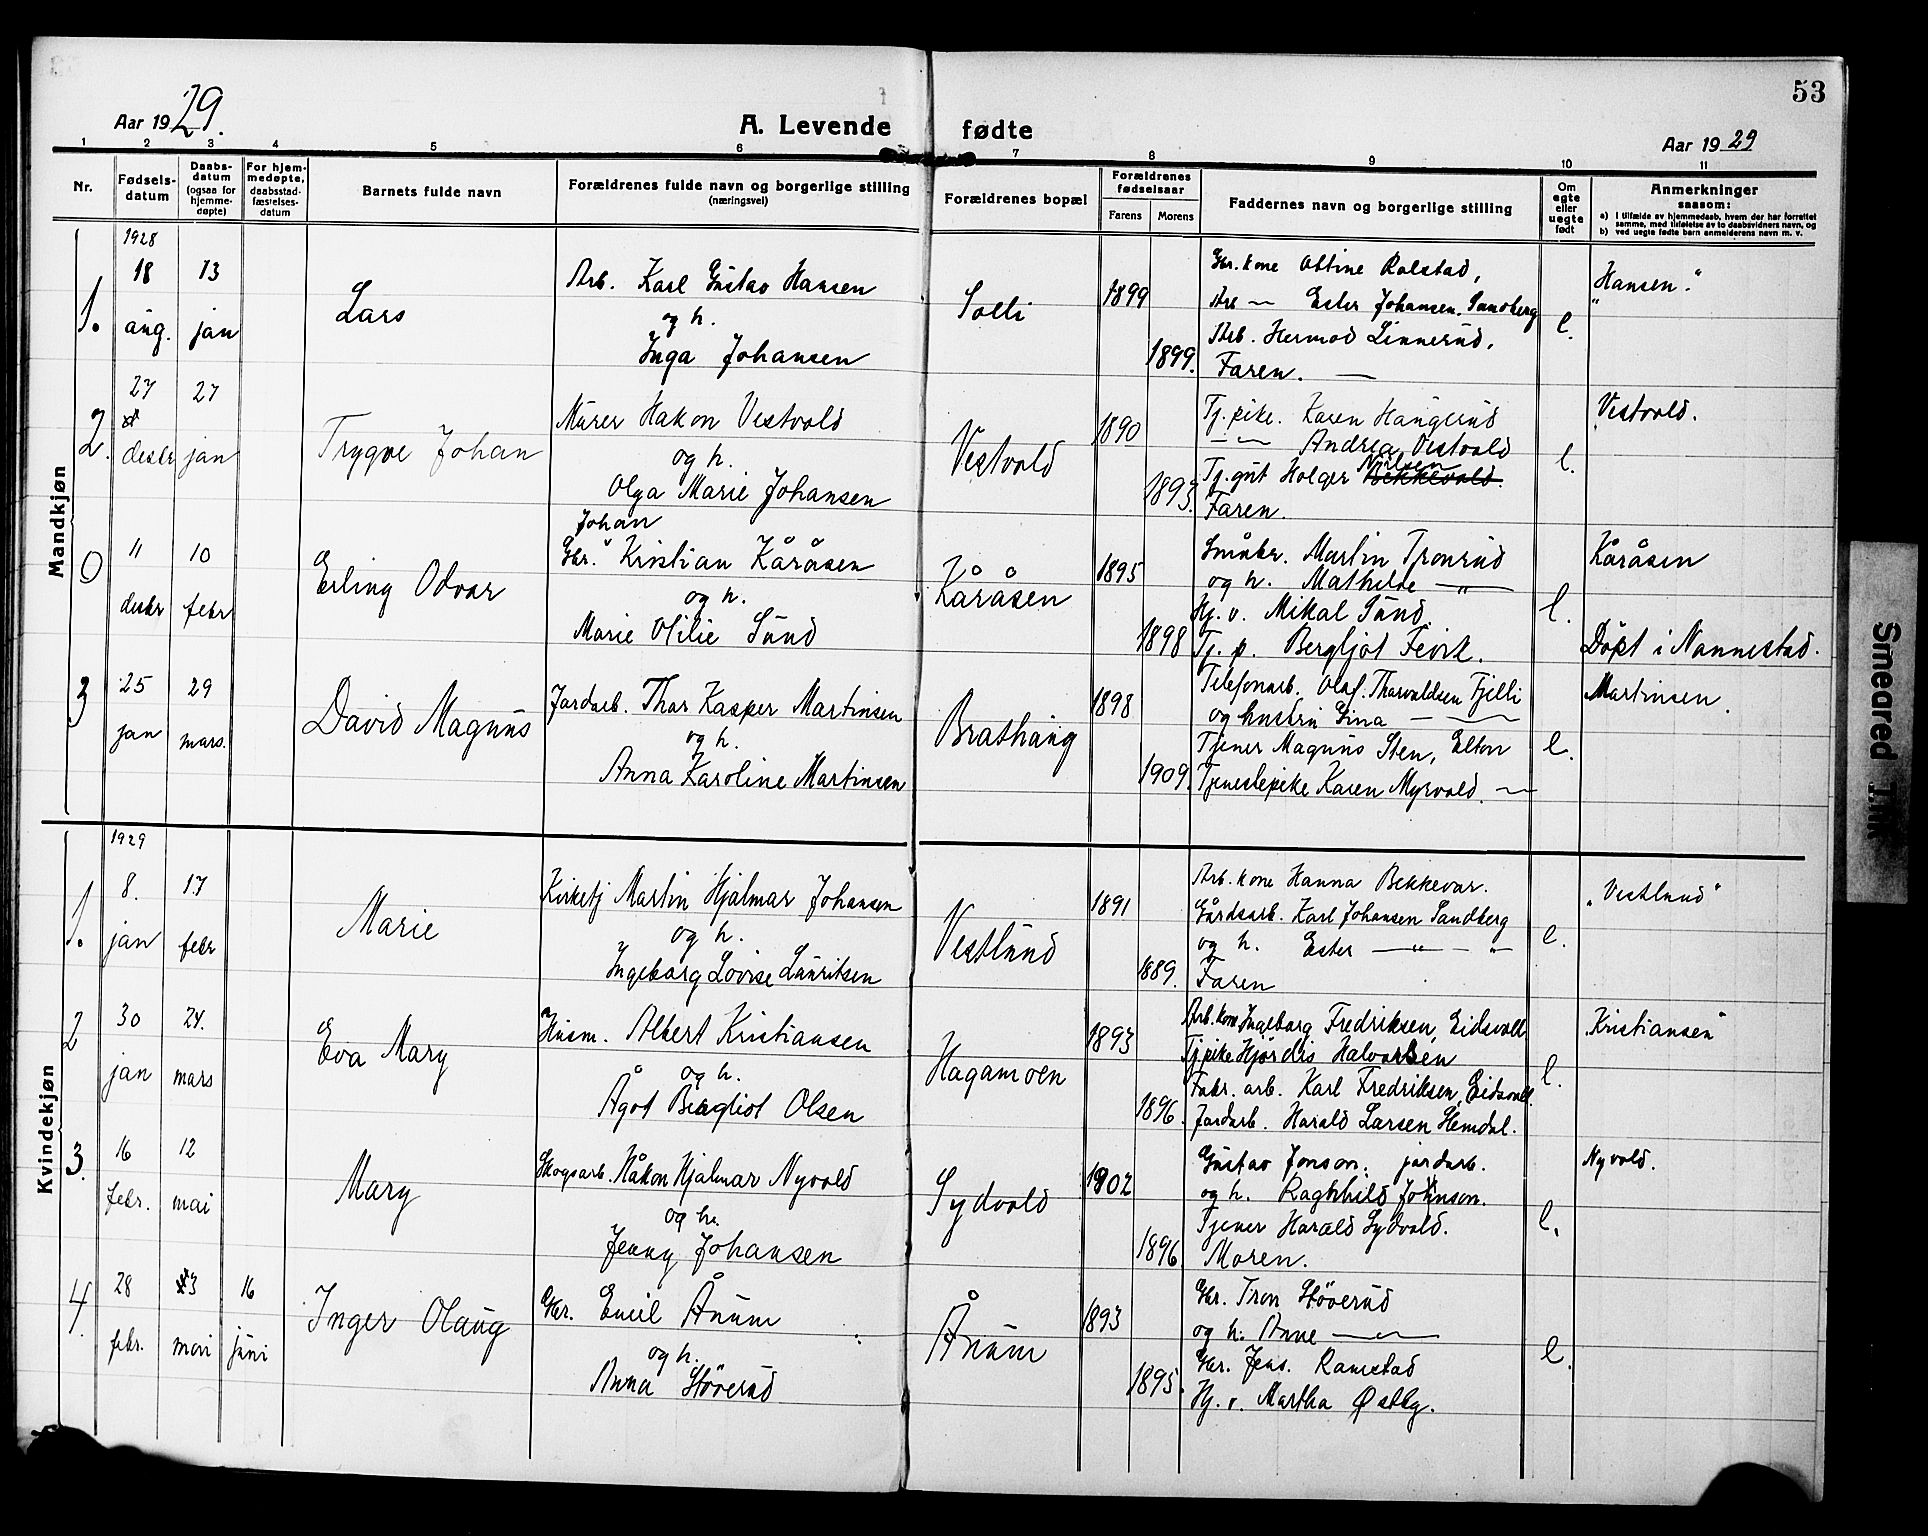 53
Aar 1929.
A. Levende fødte
Aar 1929
1 2 3 4 5 6 7 8 9 10 11
Nr.
Fødsels-
datum
Daabs-
datum
(ogsaa for
hjemme-
døpte)
For hjem-
medøpte,
daabsstad-
fæstelses-
datum
Barnets fulde navn
Forældrenes fulde navn og borgerlige stilling
(næringsvei)
Forældrenes bopæl
Forældrenes
fødselsaar
Farens
Morens
Faddernes navn og borgerlige stilling
Om
ægte
eller
uegte
født
Anmerkninger
saasom:
a) I tilfælde av hjemmedaab, hvem der har forrettet
samme, med tilføielse av to daabsvidners navn, og
b) ved uegte fødte barn anmelderens navn m. v.
Mandkjøn
1.
1928
18
aug.
13
jan
Lars
Arb. Karl Gustav Hansen
og h.
Inga Johansen
Solli
1899
1899.
Gbr. kone Ottine Rolstad,
Arb — Ester Johansen, Sandberg
Arb. Hermod Linnerud,
Faren. —
e.
"Hansen."
2.
27
desbr
27
jan
Trygve Johan
Murer Hakon Vestvold
og h.
Olga Marie Johansen
Vestvold
1890
1893.
Tj. pike. Karen Haugerud
— — Andrea Vestvold
Tj. gut Holger Nilsen Bekkevold.
Faren.
e.
Vestvold.
0
11
desbr
10
febr
Erling Odvar
Johan
Gbr. Kristian Kåråsen
og h.
Marie Olilie Sund
Kåråsen
1895
1898
Småbr. Martin Tronrud
og h. Mathilde — " —
Hj. v. Mikal Sund.
Tj. p. Bergljot Feirk.
e.
Kåråsen
Döpt i Nannestad.
3
25
jan
29
mars.
David Magnus
Jordarb. Thor Kasper Martinsen
og h.
Anna Karoline Martinsen
Brathaug
1898
1909.
Telefonarb. Olaf Thorvaldsen Fjelli
og hustru Gina — —
Tjener Magnus Sten, Elton
Tjenestepike Karen Myrvold. —
e.
Martinsen.
Kvindekjøn
1.
1929
8.
jan
17
febr
Marie
Kirketj Martin Hjalmar Johansen
og h.
Ingeborg Lovise Lauritsen
Vestlund
1891
1889.
Arb. kone Hanna Bekkevar.
Gårdsarb. Karl Johansen Sandberg
og h. Ester — " — "
Faren
e.
"Vestlund"
2
30
jan
24.
mars
Eva Mary
Husm. Albert Kristiansen
og h.
Ågot Bergliot Olsen
Hagamoen
1893
1896.
Arb. kone Ingeborg Fredriksen, Eidsvoll
Tj pike Hjördis Halvorsen
Fabr. arb. Karl Fredriksen, Eidsvoll.
Jordarb. Harald Larsen Hemdal.
e.
"Kristiansen"
3.
16
febr.
12
mai
Mary
Skogsarb. Håkon Hjalmar Nyvold
og h.
Jenny Johansen
Sydvold
1902
1896
Gustav Jonson. jordarb.
og h. Ragnhild Johnson.
Tjener Harald Sydvold.
Moren.
e.
Nyvold.
4.
28
febr.
3
mai
16
juni
Inger Olaug
Gbr. Emil Årum
og h.
Anna Stöverud
Årum
1893
1895.
Gbr. Tron Stöverud
og h. Anne — —
Gbr. Jens. Ramstad
Hj. v. Martha Østby.
e.
Smeared Ink